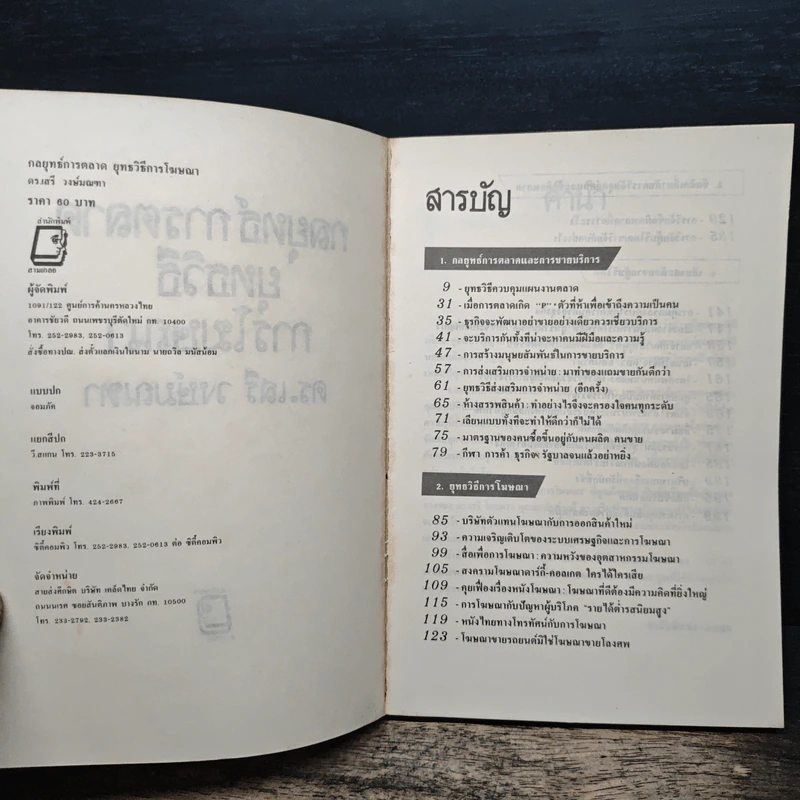 กลยุทธ์การตลาด ยุทธวิธีการโฆษณา
ดร.เสรี วงษ์มณฑา
ราคา 60 บาท
สำนักพิมพ์
สามเกลอ
ผู้จัดพิมพ์
1091/122 ศูนย์การค้านครหลวงไทย
อาคารชัยวดี ถนนเพชรบุรีตัดใหม่ กท. 10400
โทร. 252-2983, 252-0613
สั่งซื้อทางปณ. สั่งตั๋วแลกเงินในนาม นายถวัล มนัสน้อม
แบบปก
จอมภัค
แยกสีปก
วี.สแกน โทร. 223-3715
พิมพ์ที่
ภาพพิมพ์ โทร. 424-2667
เรียงพิมพ์
ซิตี้คอมพิว โทร. 252-2983, 252-0613 ต่อ ซิตี้คอมพิว
จัดจำหน่าย
สายส่งศึกษิต บริษัท เคล็ดไทย จำกัด
ถนนนเรศ ซอยสันติภาพ บางรัก กท. 10500
โทร. 233-2792, 233-2382
สารบัญ
1. กลยุทธ์การตลาดและการขายบริการ
9 - ยุทธวิธีควบคุมแผนงานตลาด
31 - เมื่อการตลาดเกิด "P" ตัวที่ห้าเพื่อเข้าถึงความเป็นคน
35 - ธุรกิจจะพัฒนาอย่าขายอย่างเดียวควรเชี่ยวบริการ
41 - จะบริการกันทั้งทีน่าจะหาคนมีฝีมือและความรู้
47 - การสร้างมนุษยสัมพันธ์ในการขายบริการ
57 - การส่งเสริมการจำหน่าย : มาทำของแถมขายกันดีกว่า
61 - ยุทธวิธีส่งเสริมการจำหน่าย (อีกครั้ง)
65 - ห้างสรรพสินค้า : ทำอย่างไรจึงจะครองใจคนทุกระดับ
71 - เลียนแบบทั้งทีจะทำให้ดีกว่าก็ไม่ได้
75 - มาตรฐานของคนซื้อขึ้นอยู่กับคนผลิต คนขาย
79 - กีฬา การค้า ธุรกิจฯ รัฐบาลจนแล้วอย่าหยิ่ง
2. ยุทธวิธีการโฆษณา
85 - บริษัทตัวแทนโฆษณากับการออกสินค้าใหม่
93 - ความเจริญเติบโตของระบบเศรษฐกิจและการโฆษณา
99 - สื่อเพื่อการโฆษณา : ความหวังของอุตสาหกรรมโฆษณา
105 - สงครามโฆษณาดาร์กี้-คอลเกต ใครได้ใครเสีย
109 - คุยเฟื่องเรื่องหนังโฆษณา : โฆษณาที่ดีต้องมีความคิดที่ยิ่งใหญ่
115 - การโฆษณากับปัญหาผู้บริโภค "รายได้ต่ำรสนิยมสูง"
119 - หนังไทยทางโทรทัศน์กับการโฆษณา
123 - โฆษณาขายรถยนต์มิใช่โฆษณาขายโลงศพ